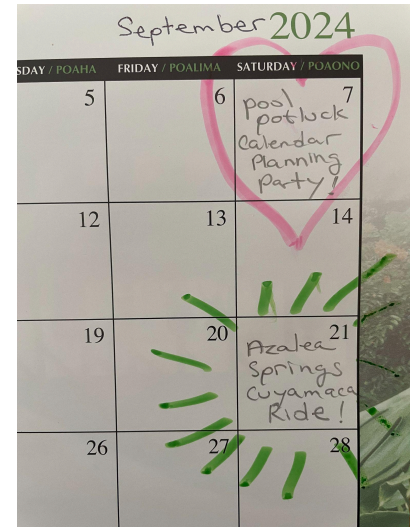 September 2024
SDAY / POAHA FRIDAY / POALIMA SATURDAY / POAONO
5 6 7
pool
potluck
Calendar
Planning
Party!
12 13 14
19 20 21
Azalea
Springs
Cuyamaca
Ride!
26 27 28